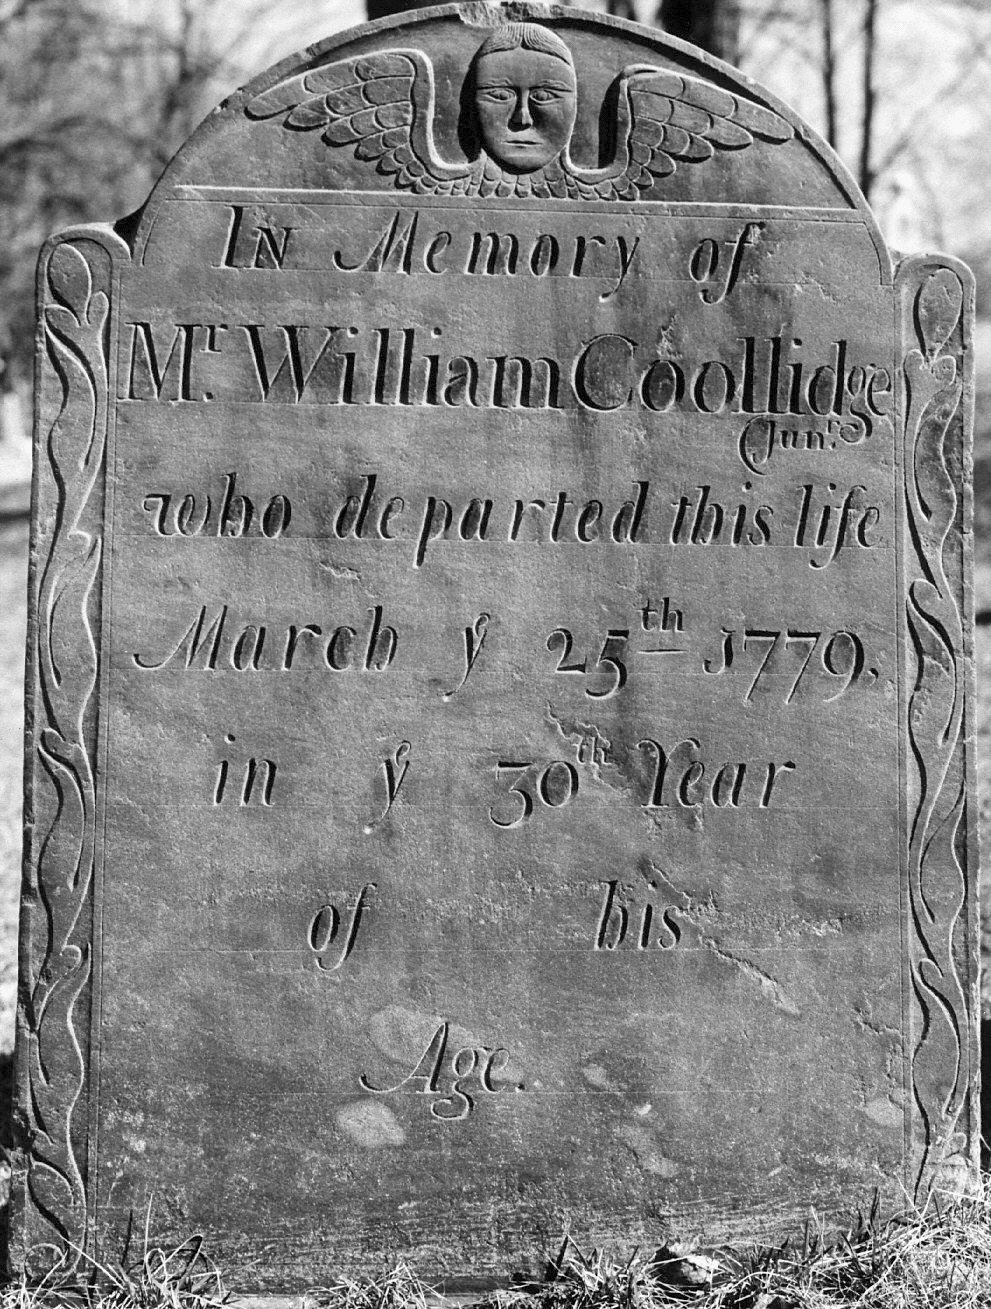 In Memory of
Mr. William Coollidge
Junr.
who departed this life
March ye 25th 1779,
in ye 30th Year
of his
Age.